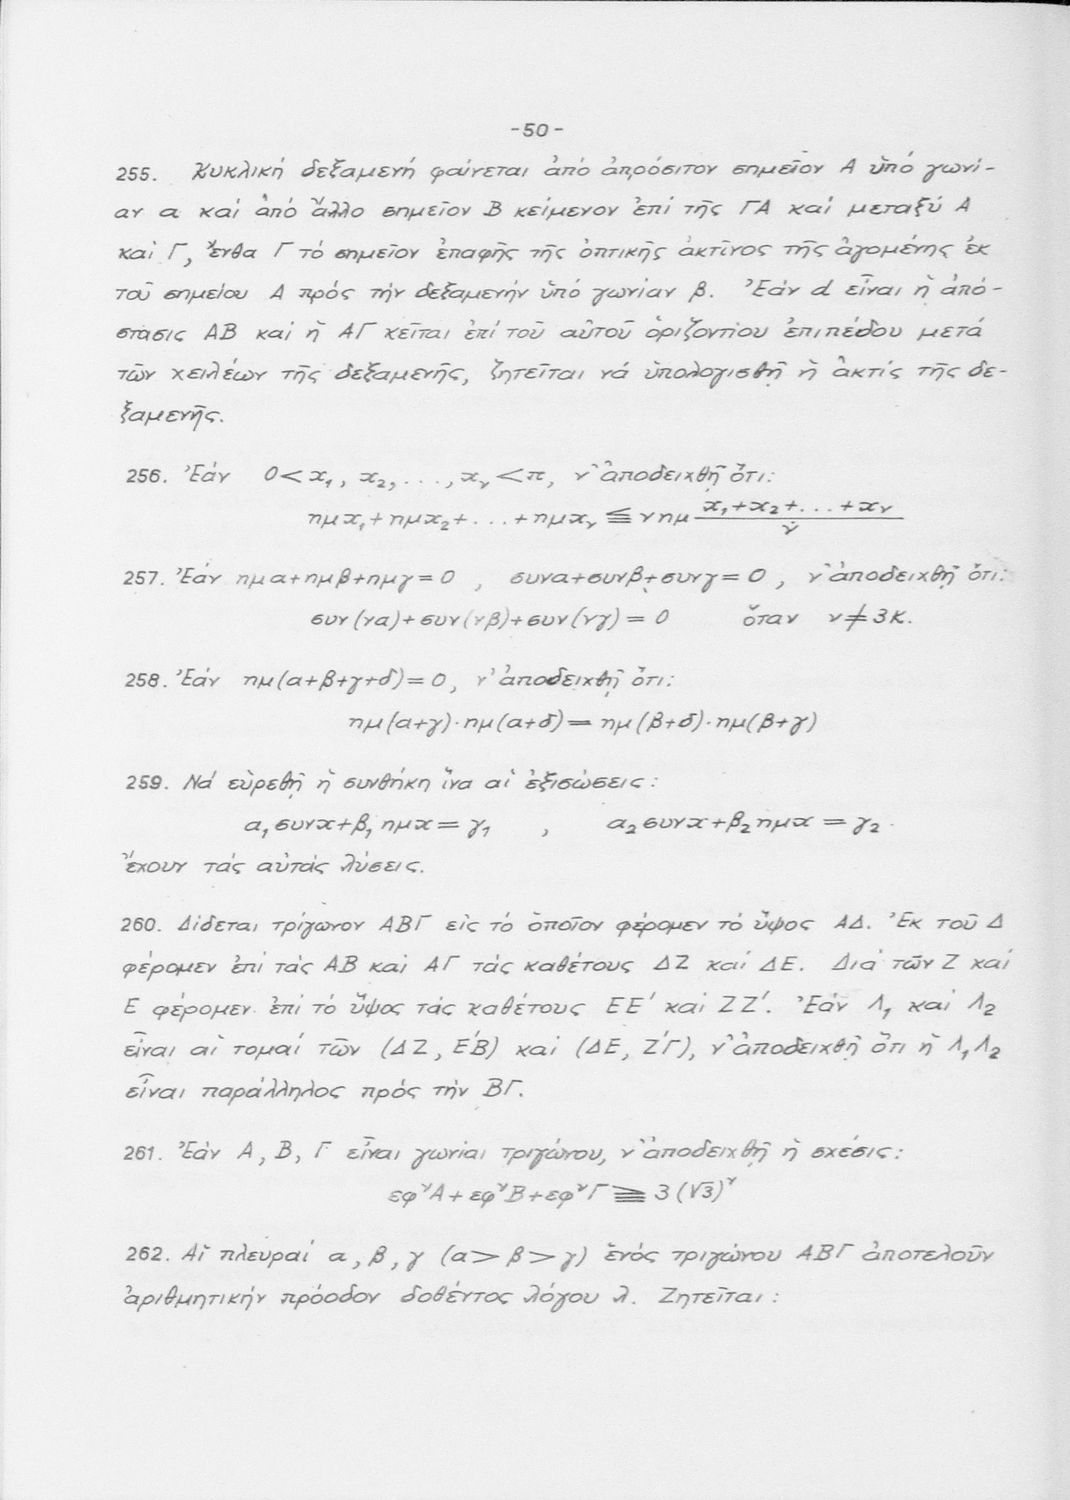 -50-
255. Κυκλική δεξαμενή φαίνεται ἀπό ἀπρόσιτον σημεῖον Α ὑπό γωνί-
αν α καί ἀπό ἄλλο σημεῖον Β κείμενον ἐπί τῆς ΓΑ καί μεταξύ Α
καί Γ, ἔνθα Γ τό σημεῖον ἐπαφῆς τῆς ὀπτικῆς ἀκτῖνος τῆς ἀγομένης ἐκ
τοῦ σημείου Α πρός τήν δεξαμενήν ὑπό γωνίαν β. Ἐάν d εἶναι ἡ ἀπό-
στασις ΑΒ καί ἡ ΑΓ κεῖται ἐπί τοῦ αὐτοῦ ὁριζοντίου ἐπιπέδου μετά
τῶν χειλέων τῆς δεξαμενῆς, ζητεῖται νά ὑπολογισθῇ ἡ ἀκτίς τῆς δε-
ξαμενῆς.
256. Ἐάν 0<x₁, x₂, ..., xᵥ<π, ν' ἀποδειχθῇ ὅτι:
ημx₁+ημx₂+...+ημxᵥ ≦ ν ημ (x₁+x₂+...+xᵥ)/ν
257. Ἐάν ημα+ημβ+ημγ=0 , συνα+συνβ+συνγ=0 , ν' ἀποδειχθῇ ὅτι:
συν(να)+συν(νβ)+συν(νγ)=0 ὅταν ν≠3Κ.
258. Ἐάν ημ(α+β+γ+δ)=0, ν' ἀποδειχθῇ ὅτι:
ημ(α+γ)·ημ(α+δ)=ημ(β+δ)·ημ(β+γ)
259. Νά εὑρεθῇ ἡ συνθήκη ἵνα αἱ ἐξισώσεις:
α₁συνx+β₁ημx=γ₁ , α₂συνx+β₂ημx=γ₂.
ἔχουν τάς αὐτάς λύσεις.
260. Δίδεται τρίγωνον ΑΒΓ εἰς τό ὁποῖον φέρομεν τό ὕψος ΑΔ. Ἐκ τοῦ Δ
φέρομεν ἐπί τάς ΑΒ καί ΑΓ τάς καθέτους ΔΖ καί ΔΕ. Διά τῶν Ζ καί
Ε φέρομεν ἐπί τό ὕψος τάς καθέτους ΕΕ' καί ΖΖ'. Ἐάν Λ₁ καί Λ₂
εἶναι αἱ τομαί τῶν (ΔΖ, Ε'Β) καί (ΔΕ, Ζ'Γ), ν' ἀποδειχθῇ ὅτι ἡ Λ₁Λ₂
εἶναι παράλληλος πρός τήν ΒΓ.
261. Ἐάν Α, Β, Γ εἶναι γωνίαι τριγώνου, ν' ἀποδειχθῇ ἡ σχέσις:
εφ^ν Α+εφ^ν Β+εφ^ν Γ ≧ 3(√3)^ν
262. Αἱ πλευραί α, β, γ (α>β>γ) ἑνός τριγώνου ΑΒΓ ἀποτελοῦν
ἀριθμητικήν πρόοδον δοθέντος λόγου λ. Ζητεῖται: